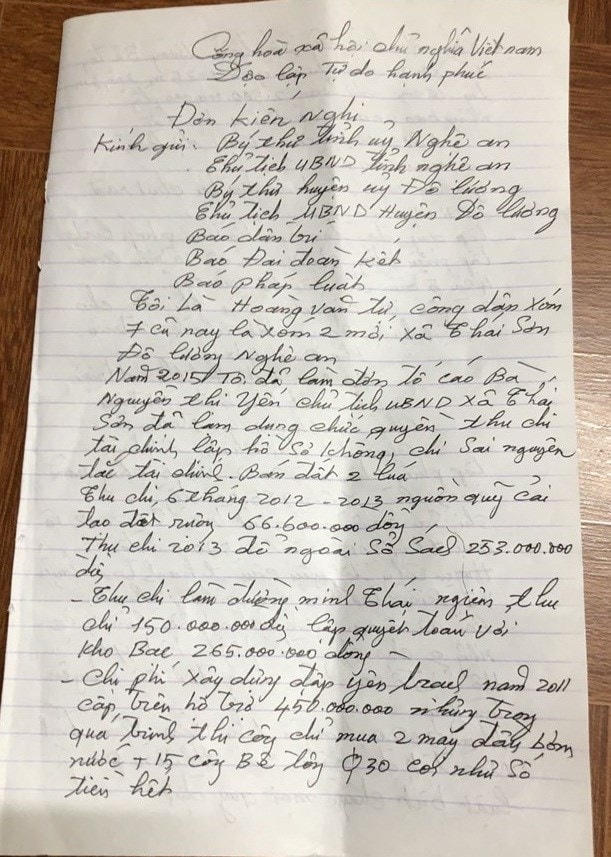 Cộng hoà xã hội chủ nghĩa Việt nam
Độc lập Tự do hạnh phúc
Đơn kiến Nghị
Kính gửi: Bý thư tỉnh uỷ Nghệ an
Chủ tịch UBND tỉnh nghệ an
Bý thư huyện uỷ Đô lương
Chủ tịch UBND Huyện Đô lương
Báo dân trí
Báo Đại đoàn kết
Báo pháp luật
Tôi Là Hoàng văn tư, công dân xóm
7 cũ nay là xóm 2 mới xã Thái Sơn
Đô lương Nghệ an
Năm 2015 Tôi đã làm đơn tố cáo Bà
Nguyễn thị Yến chủ tịch UBND xã Thái
Sơn đã lạm dụng chức quyền thu chi
tài chính lập hồ sơ khống, chi sai nguyên
tắc tài chính. Bán đất 2 lúa
Thu chi 6 tháng 2012 - 2013 nguồn quỹ cải
tạo đất ruộng 66.600.000 đồng
Thu chi 2013 để ngoài sổ sách 253.000.000
đồng
- Thu chi làm đường minh Thái nghiêm thu
chỉ 150.000.000đ lập quyết toán với
kho Bạc 265.000.000 đồng
- Chi phí xây dựng đập yên trạch năm 2011
cấp trên hỗ trợ 450.000.000 nhưng trong
quá trình thi công chỉ mua 2 máy đẩy bơm
nước + 15 cây Bê tông ф30 coi như số
tiền hết